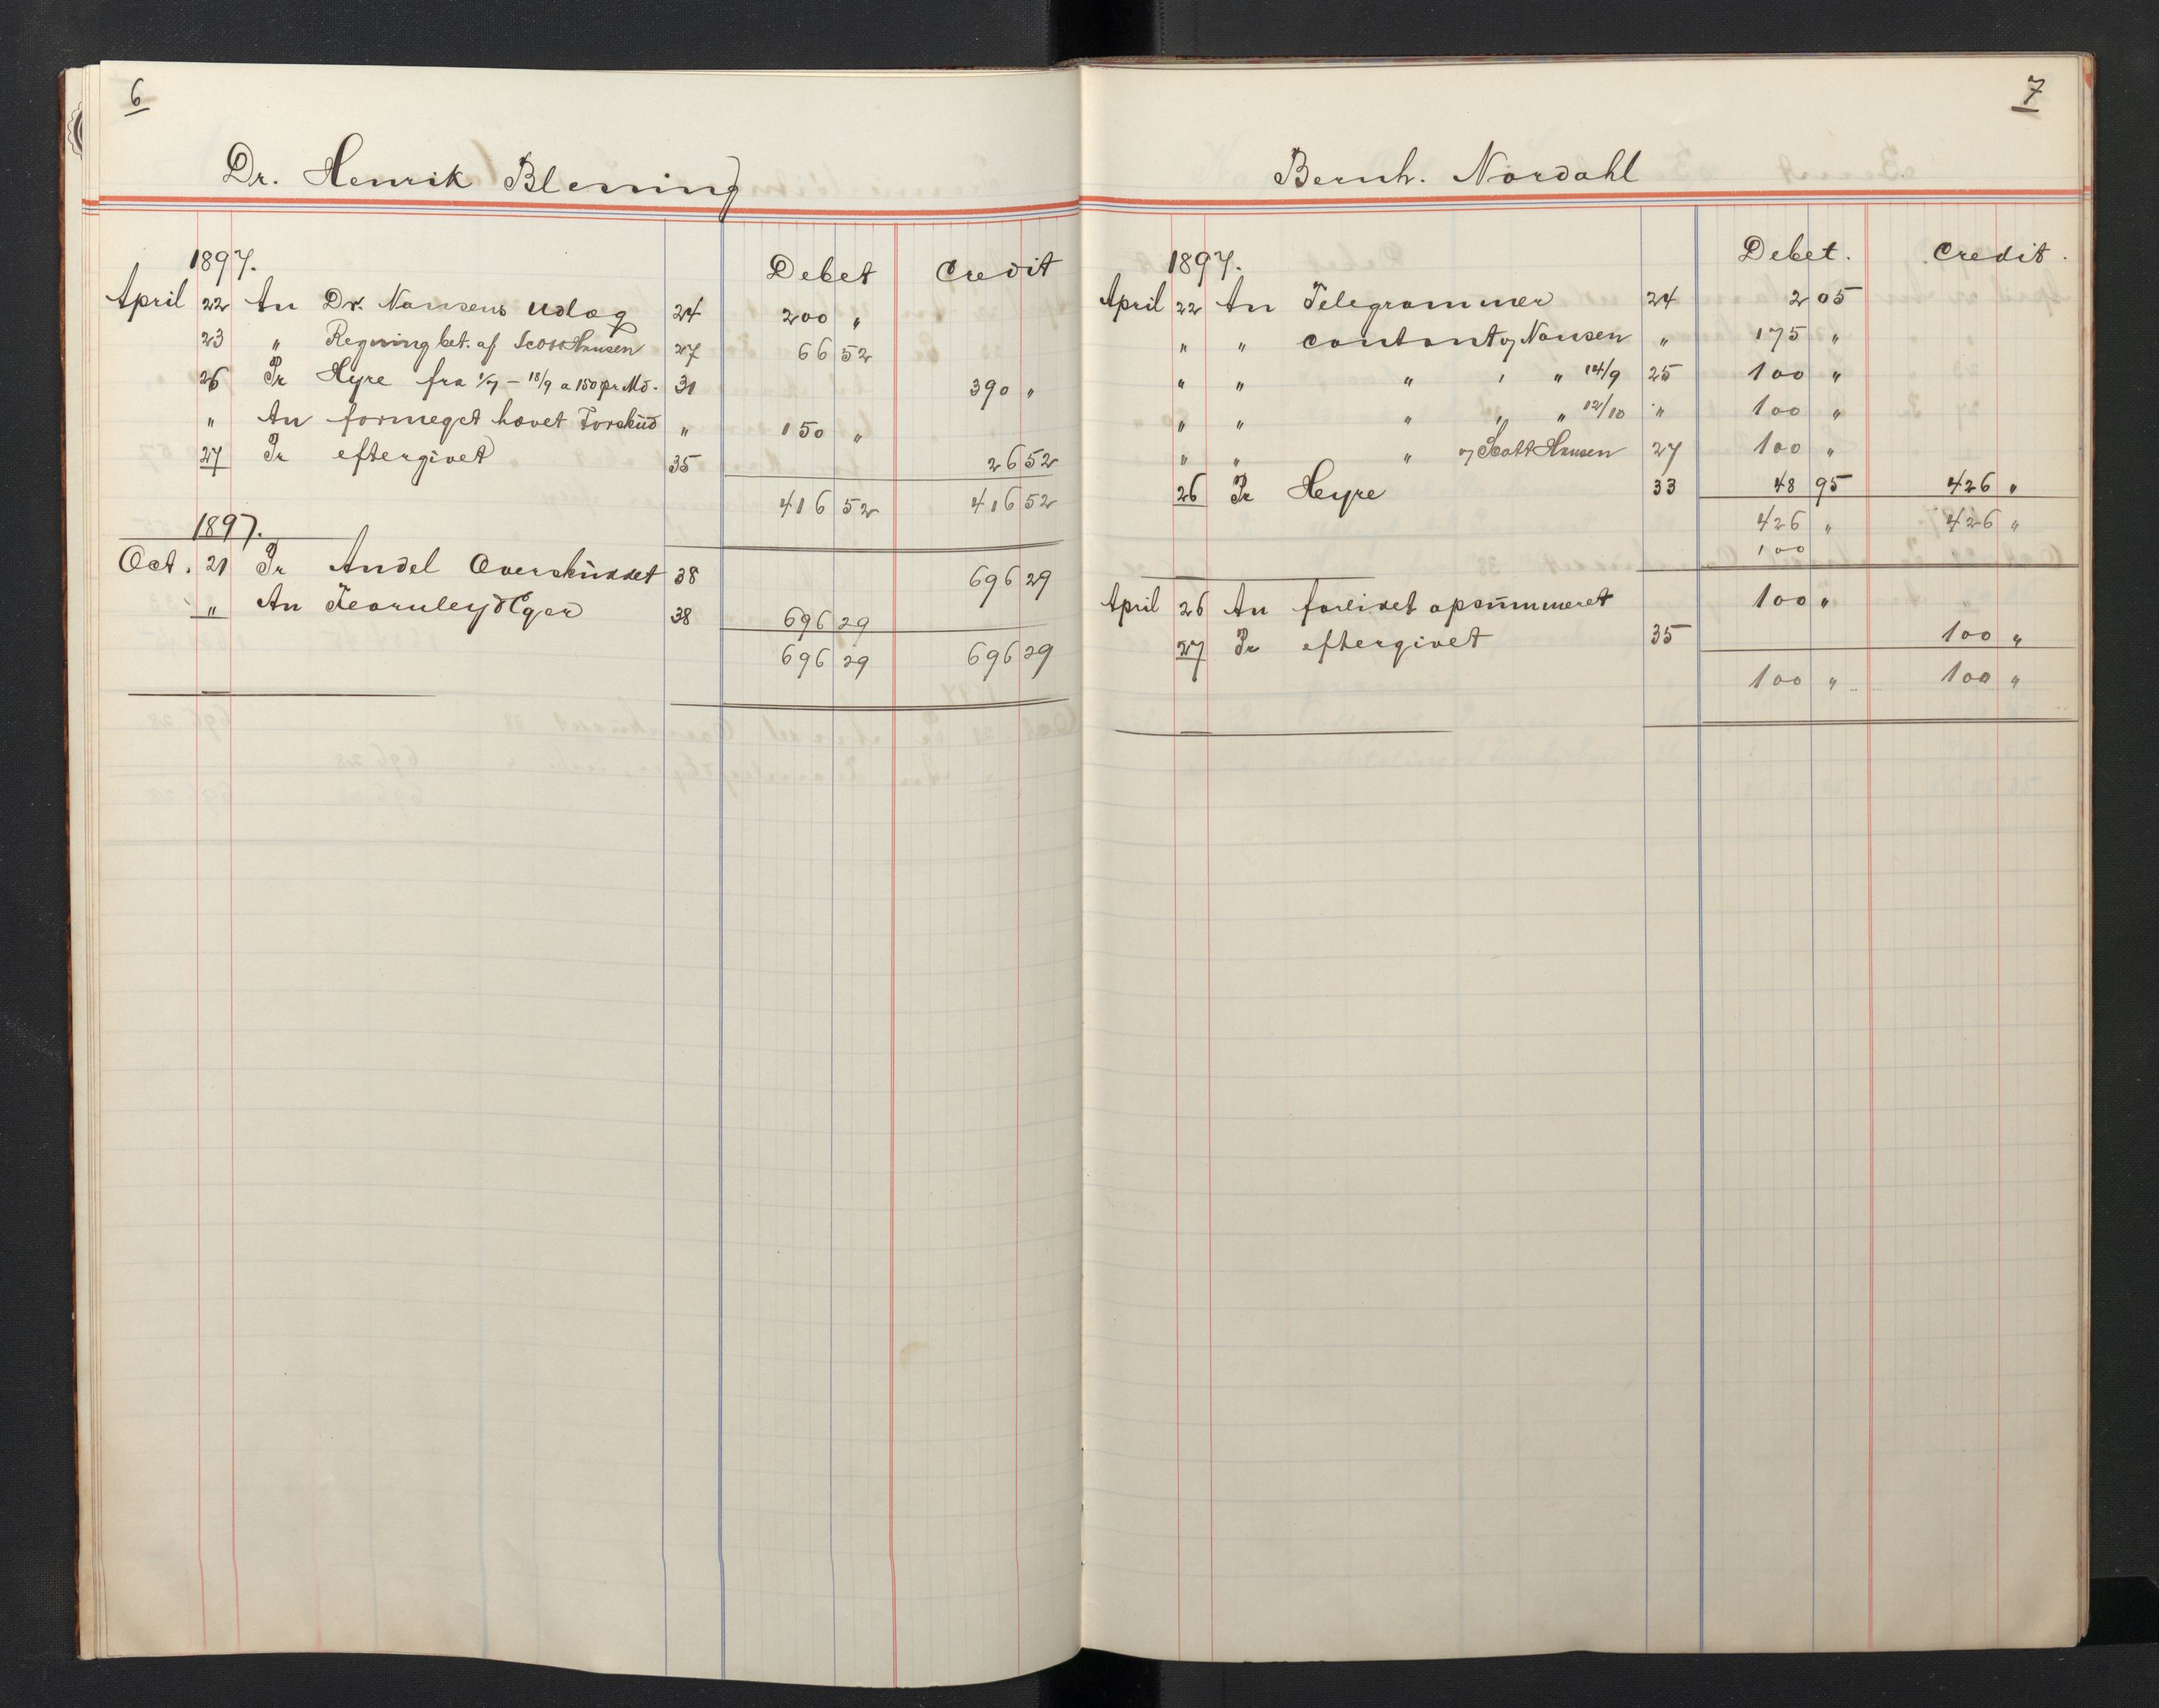 6
Dr. Henrik Blessing
1897. Debet Credit
April 22 An Dr. Nansens Udlæg 24 200 "
23 " Regning bet. af Scott Hansen 27 66 52
26 Pr Hyre fra 1/7 - 18/9 a 150 pr Md. 31 390 "
" An formeget hævet Forskud " 150 "
27 Pr eftergivet 35 26 52
416 52 416 52
1897.
Oct. 21 Pr Andel Overskuddet 38 696 29
" An Fearnley & Eger 38 696 29
696 29 696 29
7
Bernh. Nordahl
1897. Debet. Credit.
April 22 An Telegrammer 24 2 05
" " contant af Nansen " 175 "
" " " " " 14/9 25 100 "
" " " " " 12/10 " 100 "
" " " af Scott Hansen 27 100 "
26 Pr Hyre 33 48 95 426 "
426 " 426 "
100
April 26 An forlidet opsummeret 100 "
27 Pr eftergivet 35 100 "
100 " 100 "